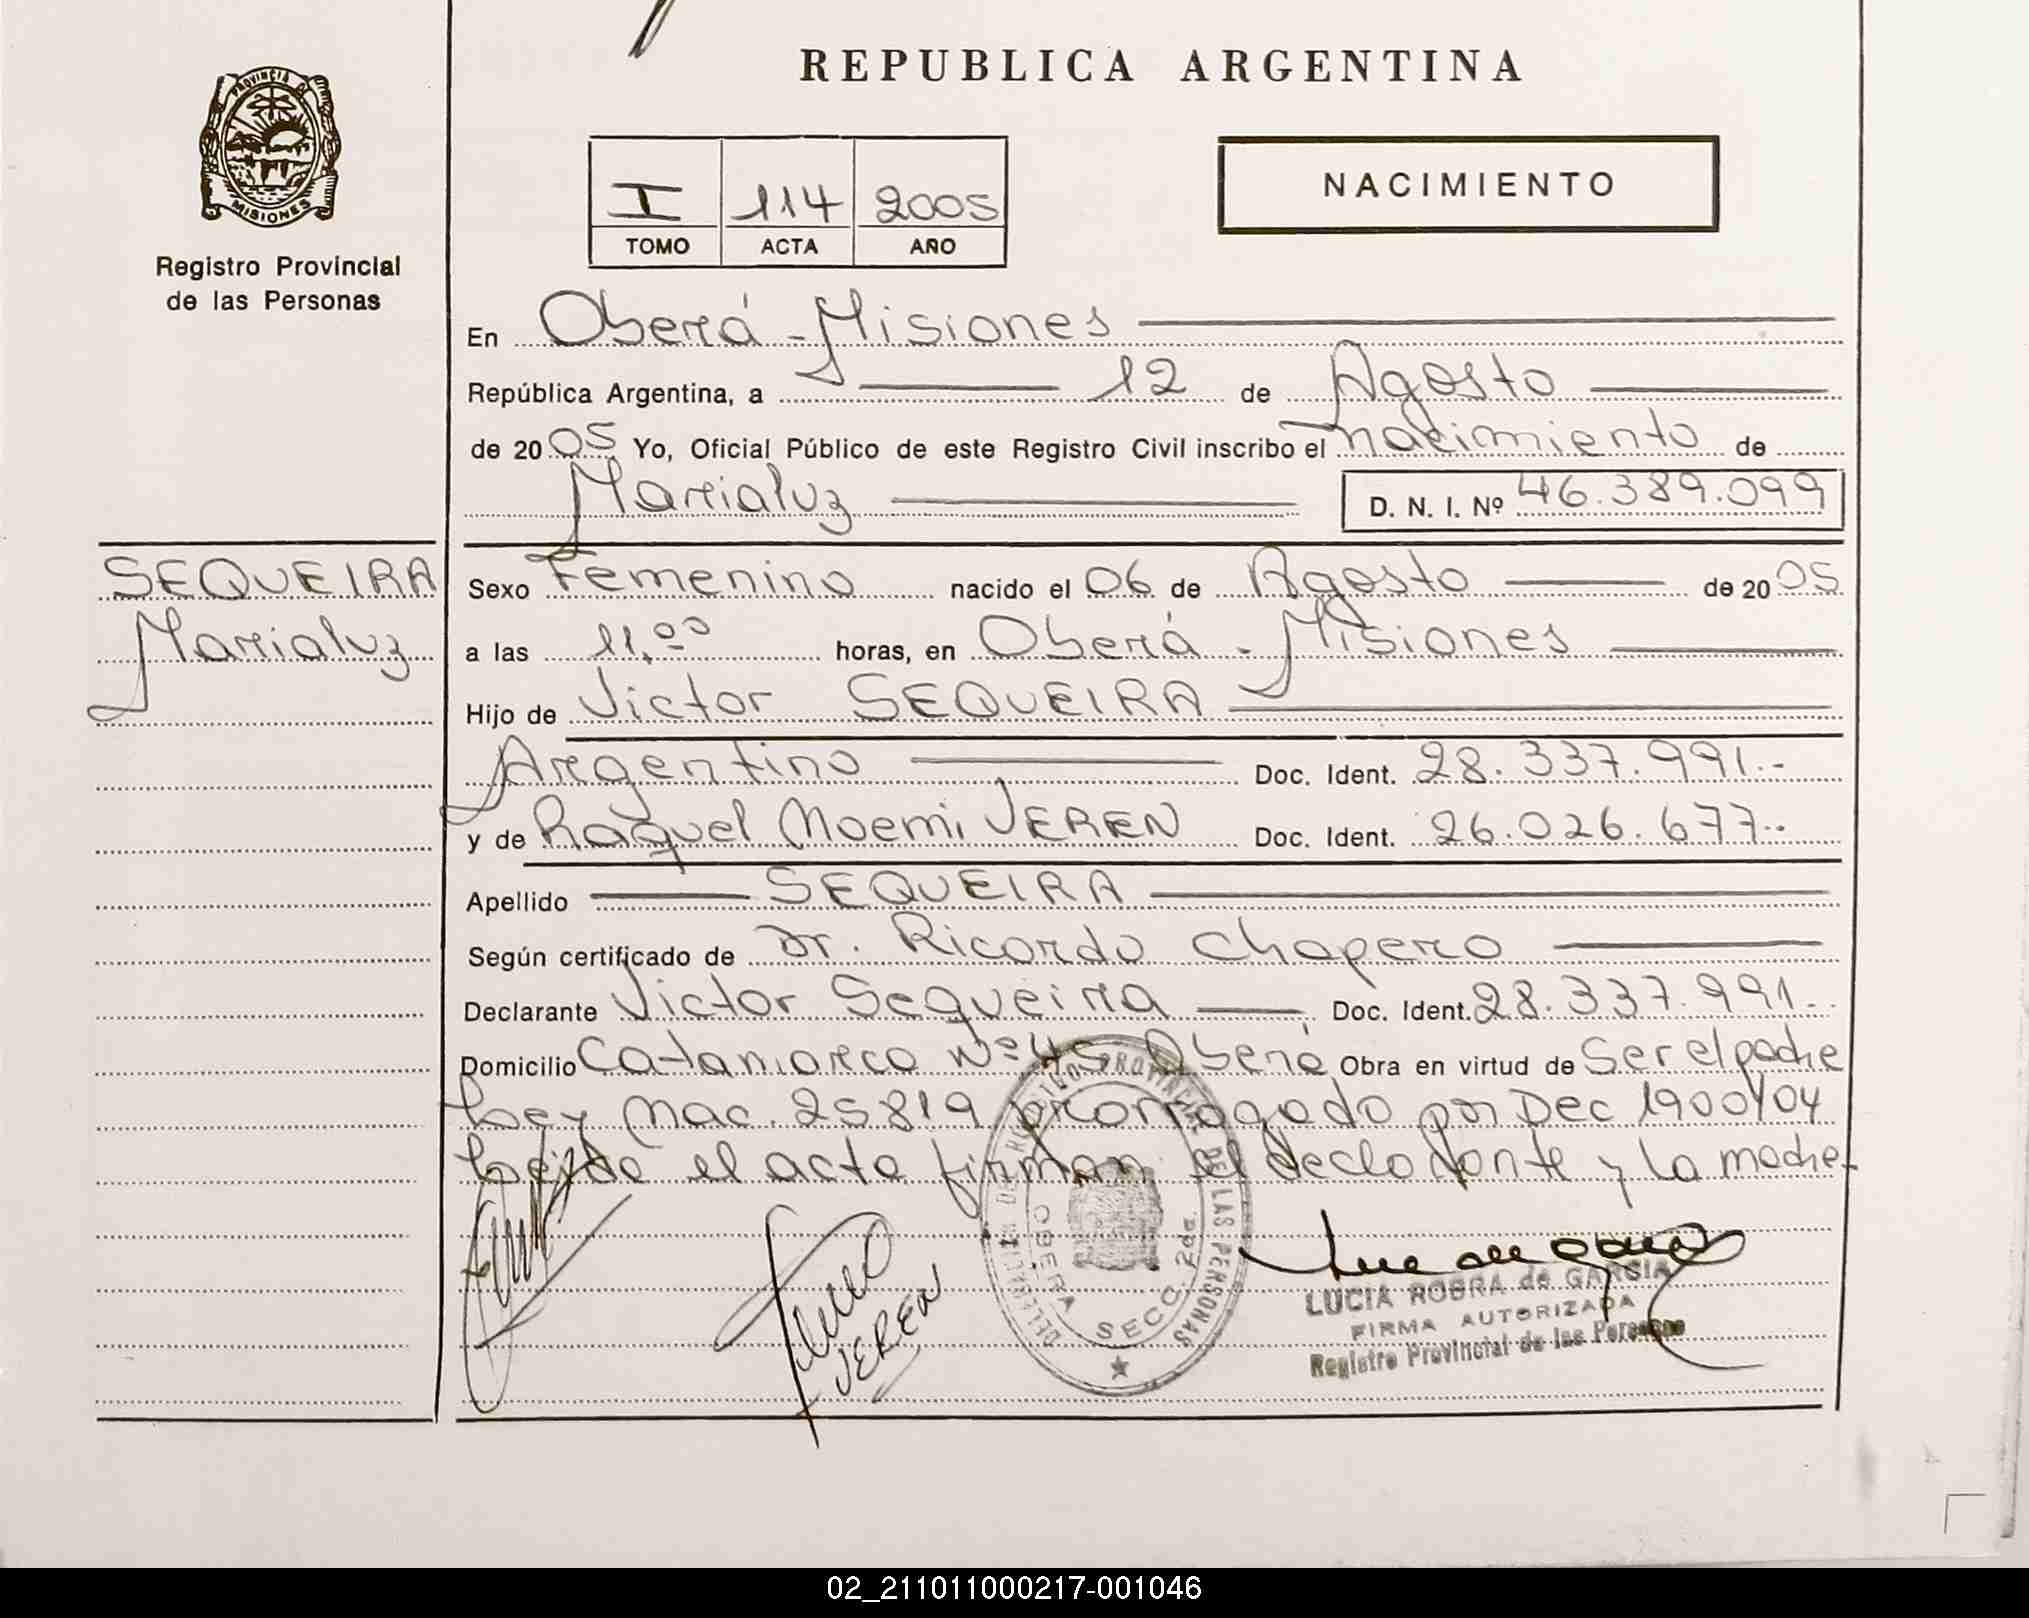 REPUBLICA ARGENTINA
PROVINCIA DE MISIONES
Registro Provincial
de las Personas
I 114 2005
TOMO ACTA AÑO
NACIMIENTO
En Oberá - Misiones
República Argentina, a 12 de Agosto
de 2005 Yo, Oficial Público de este Registro Civil inscribo el nacimiento de
Marialuz D. N. I. Nº 46.389.099
SEQUEIRA
Marialuz
Sexo Femenino nacido el 06 de Agosto de 2005
a las 11,00 horas, en Oberá - Misiones
Hijo de Victor SEQUEIRA
Argentino Doc. Ident. 28.337.991.-
y de Raquel Noemi JEREN Doc. Ident. 26.026.677.-
Apellido SEQUEIRA
Según certificado de Dr. Ricardo Chapero
Declarante Victor Sequeira Doc. Ident. 28.337.991.-
Domicilio Catamarca Nº 45 Oberá Obra en virtud de Ser el padre
Ley Nac. 25819 prorrogado por Dec 1900/04
Leída el acta firman el declarante y la madre-
JEREN
DELEGACION DEL REGISTRO PROVINCIAL DE LAS PERSONAS
OBERA SECC. 2da.
LUCIA ROBRA de GARCIA
FIRMA AUTORIZADA
Registro Provincial de las Personas
02_211011000217-001046